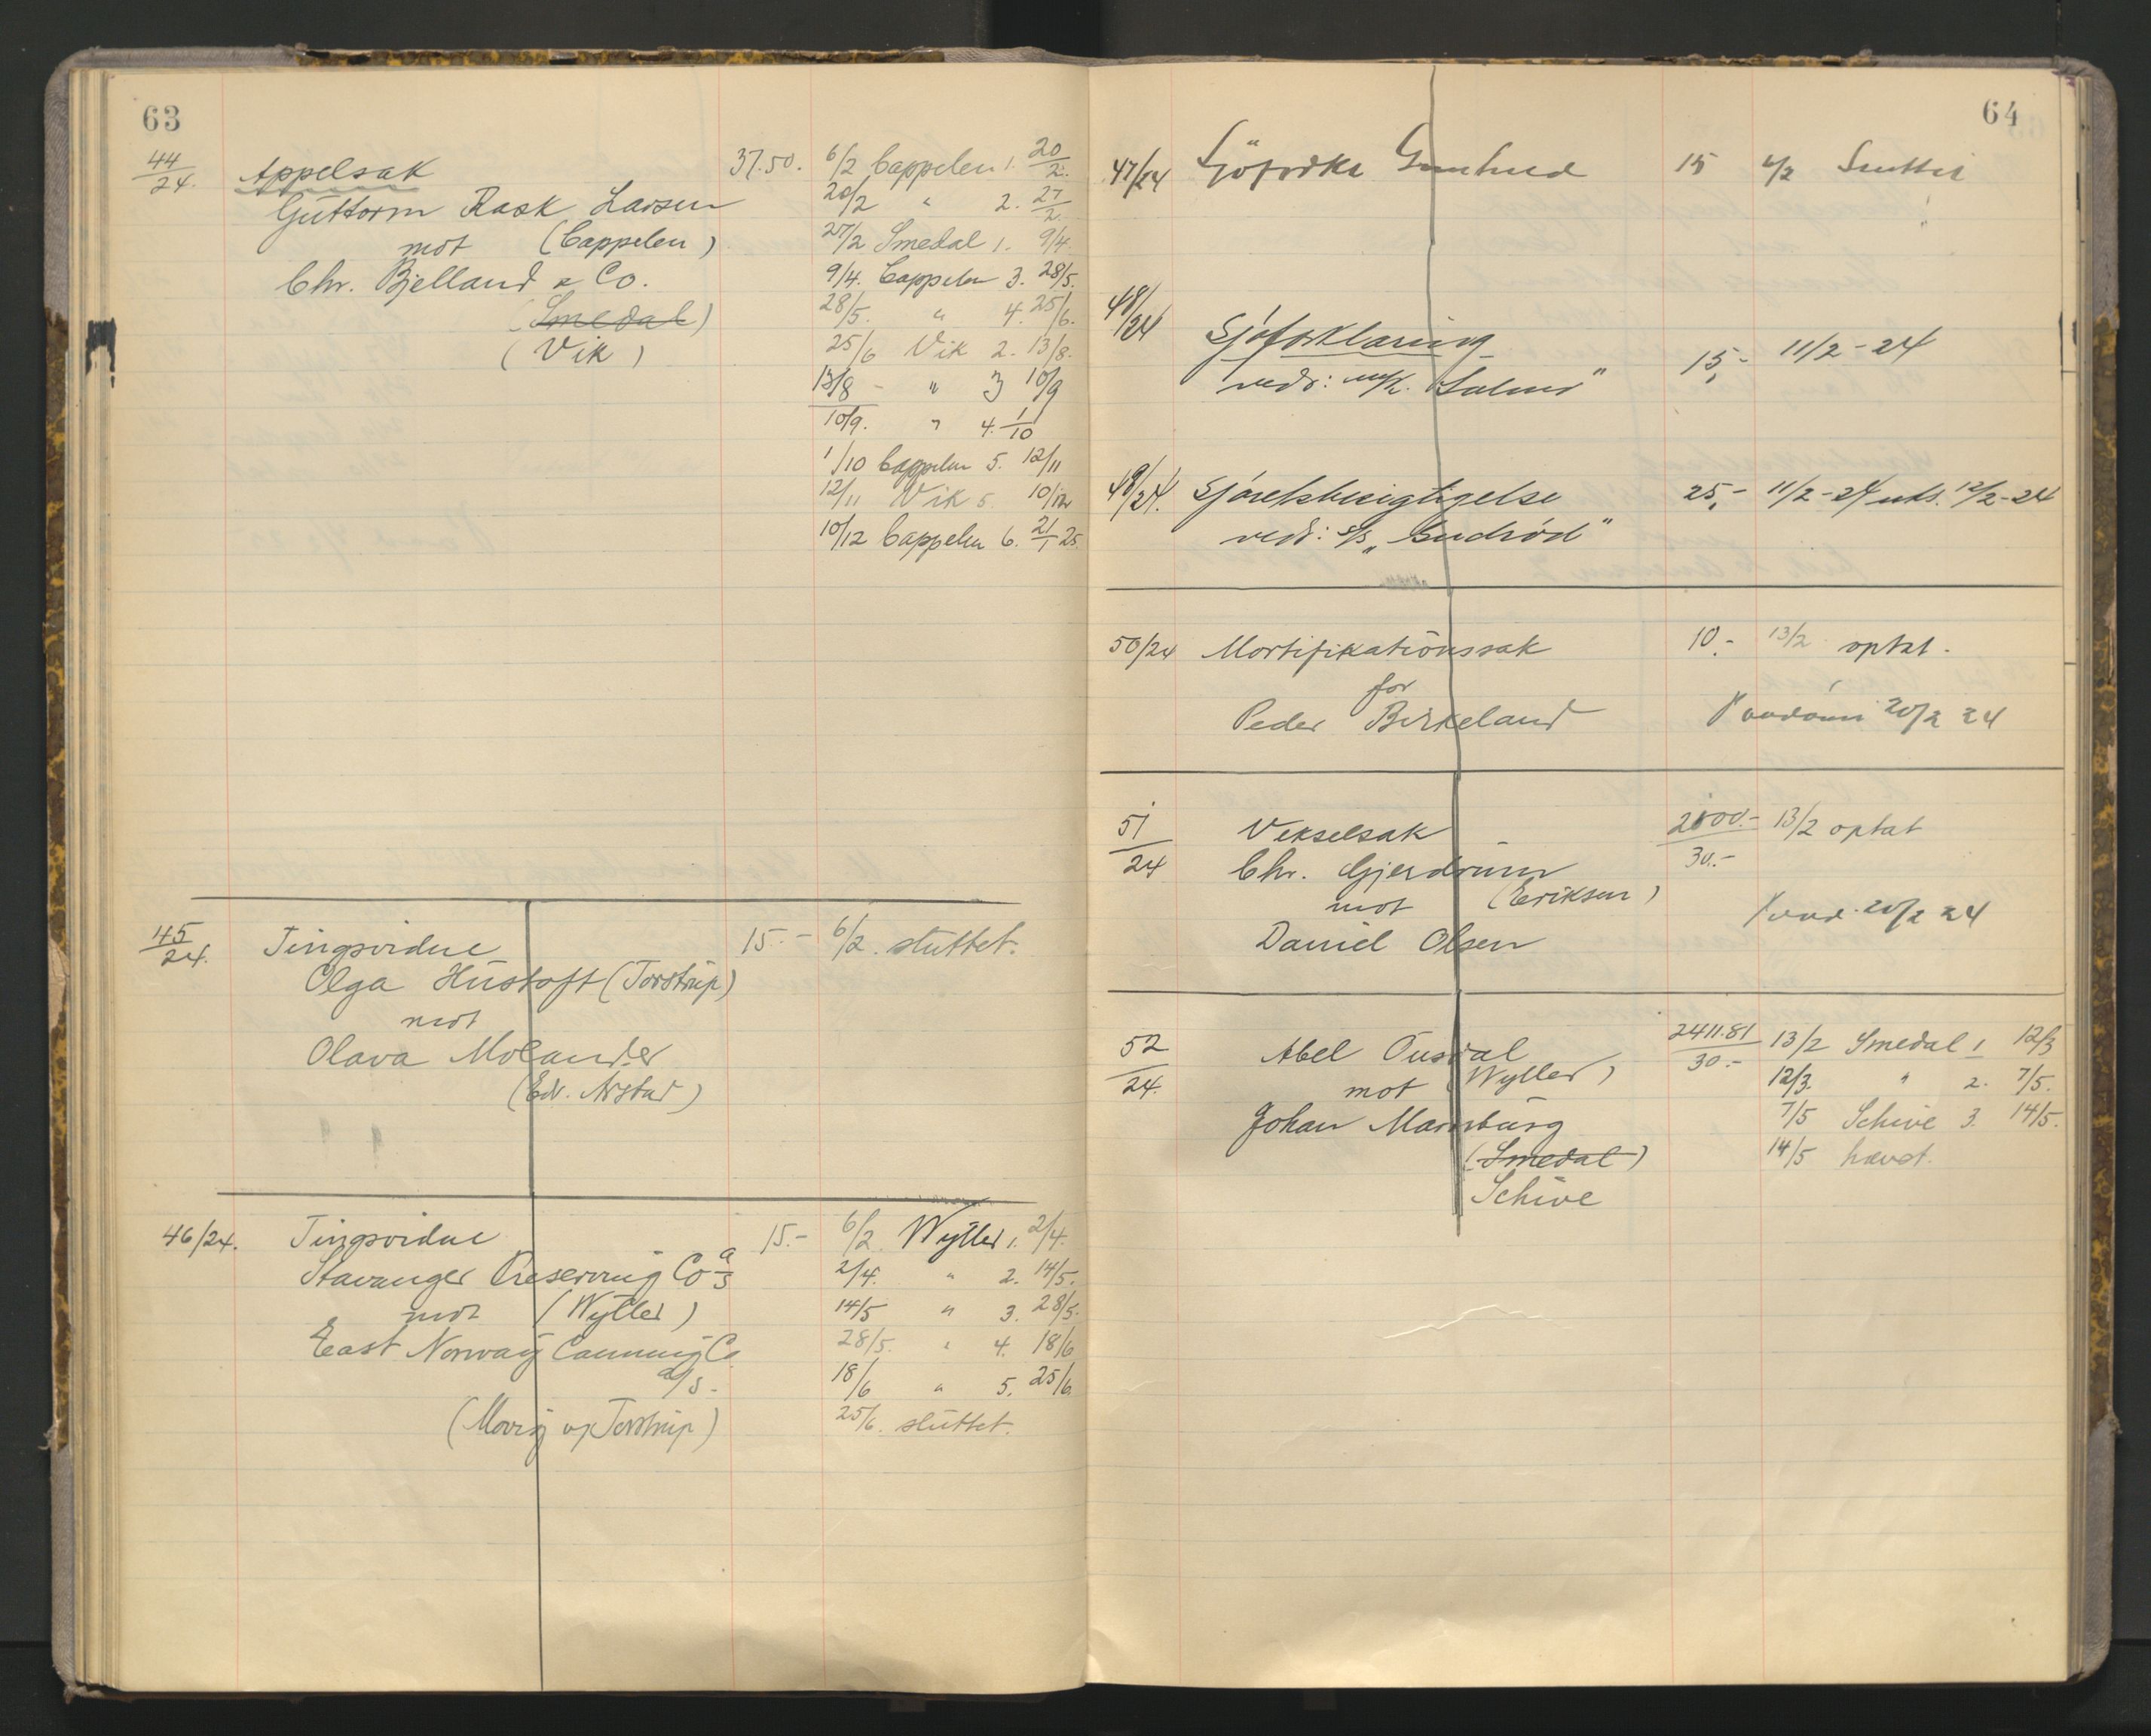 63
44/24. Appelsak 37.50. 6/2 Cappelen 1. 20/2.
Guttorm Rask Larsen 20/2 " 2. 27/2.
mot (Cappelen) 27/2 Smedal 1. 9/4.
Chr. Bjelland & Co. 9/4. Cappelen 3. 28/5.
(Smedal) 28/5. " 4. 25/6.
(Vik) 25/6 Vik 2. 13/8.
13/8 - " 3 10/9
10/9. " 4. 1/10
1/10 Cappelen 5. 12/11
12/11 Vik 5. 10/12
10/12 Cappelen 6. 21/1 25.
45/24. Tingsvidne 15.- 6/2. sluttet.
Olga Hustoft (Torstrup)
mot
Olava Molander
(Edv. Årstad)
46/24. Tingsvidne 15.- 6/2. Wyller 1. 2/4.
Stavanger Preserving Co a/s 2/4. " 2. 14/5.
mot (Wyller) 14/5 " 3. 28/5.
East Norway Canning Co 28/5. " 4. 18/6
a/s. 18/6 " 5. 25/6.
( og Torstrup) 25/6. sluttet.
64
47/24 15
48/24 Sjøforklaring 15,- 11/2-24
vedr: m/k.
49/24. Sjøretsbesigtigelse 25,- 11/2-24 uts. 12/2-24
vedr: s/s " Gudrød"
50/24 Mortifikationssak 10.- 13/2 optat.
for
Peder Birkeland 20/2 24
51/24 Vekselsak 2000.- 13/2 optat
Chr. Gjerdrum 30.-
mot (Eriksen)
20/2 24
Daniel Olsen
52/24. Abel Ousdal 2411.81 13/2 Smedal 1 12/3
mot (Wyller) 30.- 12/3. " 2. 7/5.
Johan Marnburg 7/5 Schive 3. 14/5.
(Smedal) 14/5 hævet.
Schive